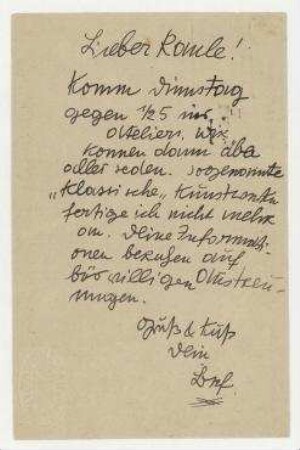 Lieber Raule!
Komm Dinnstag
gegen 1/25 ins
Atelier, wir
können dann über
alles reden. sogenannte
„Klassische" Kunst
fertige ich nicht mehr
an. Deine Informati-
onen beruhen auf
böswilligen Ausstreu-
ungen.
Gruß & Kuß
Dein